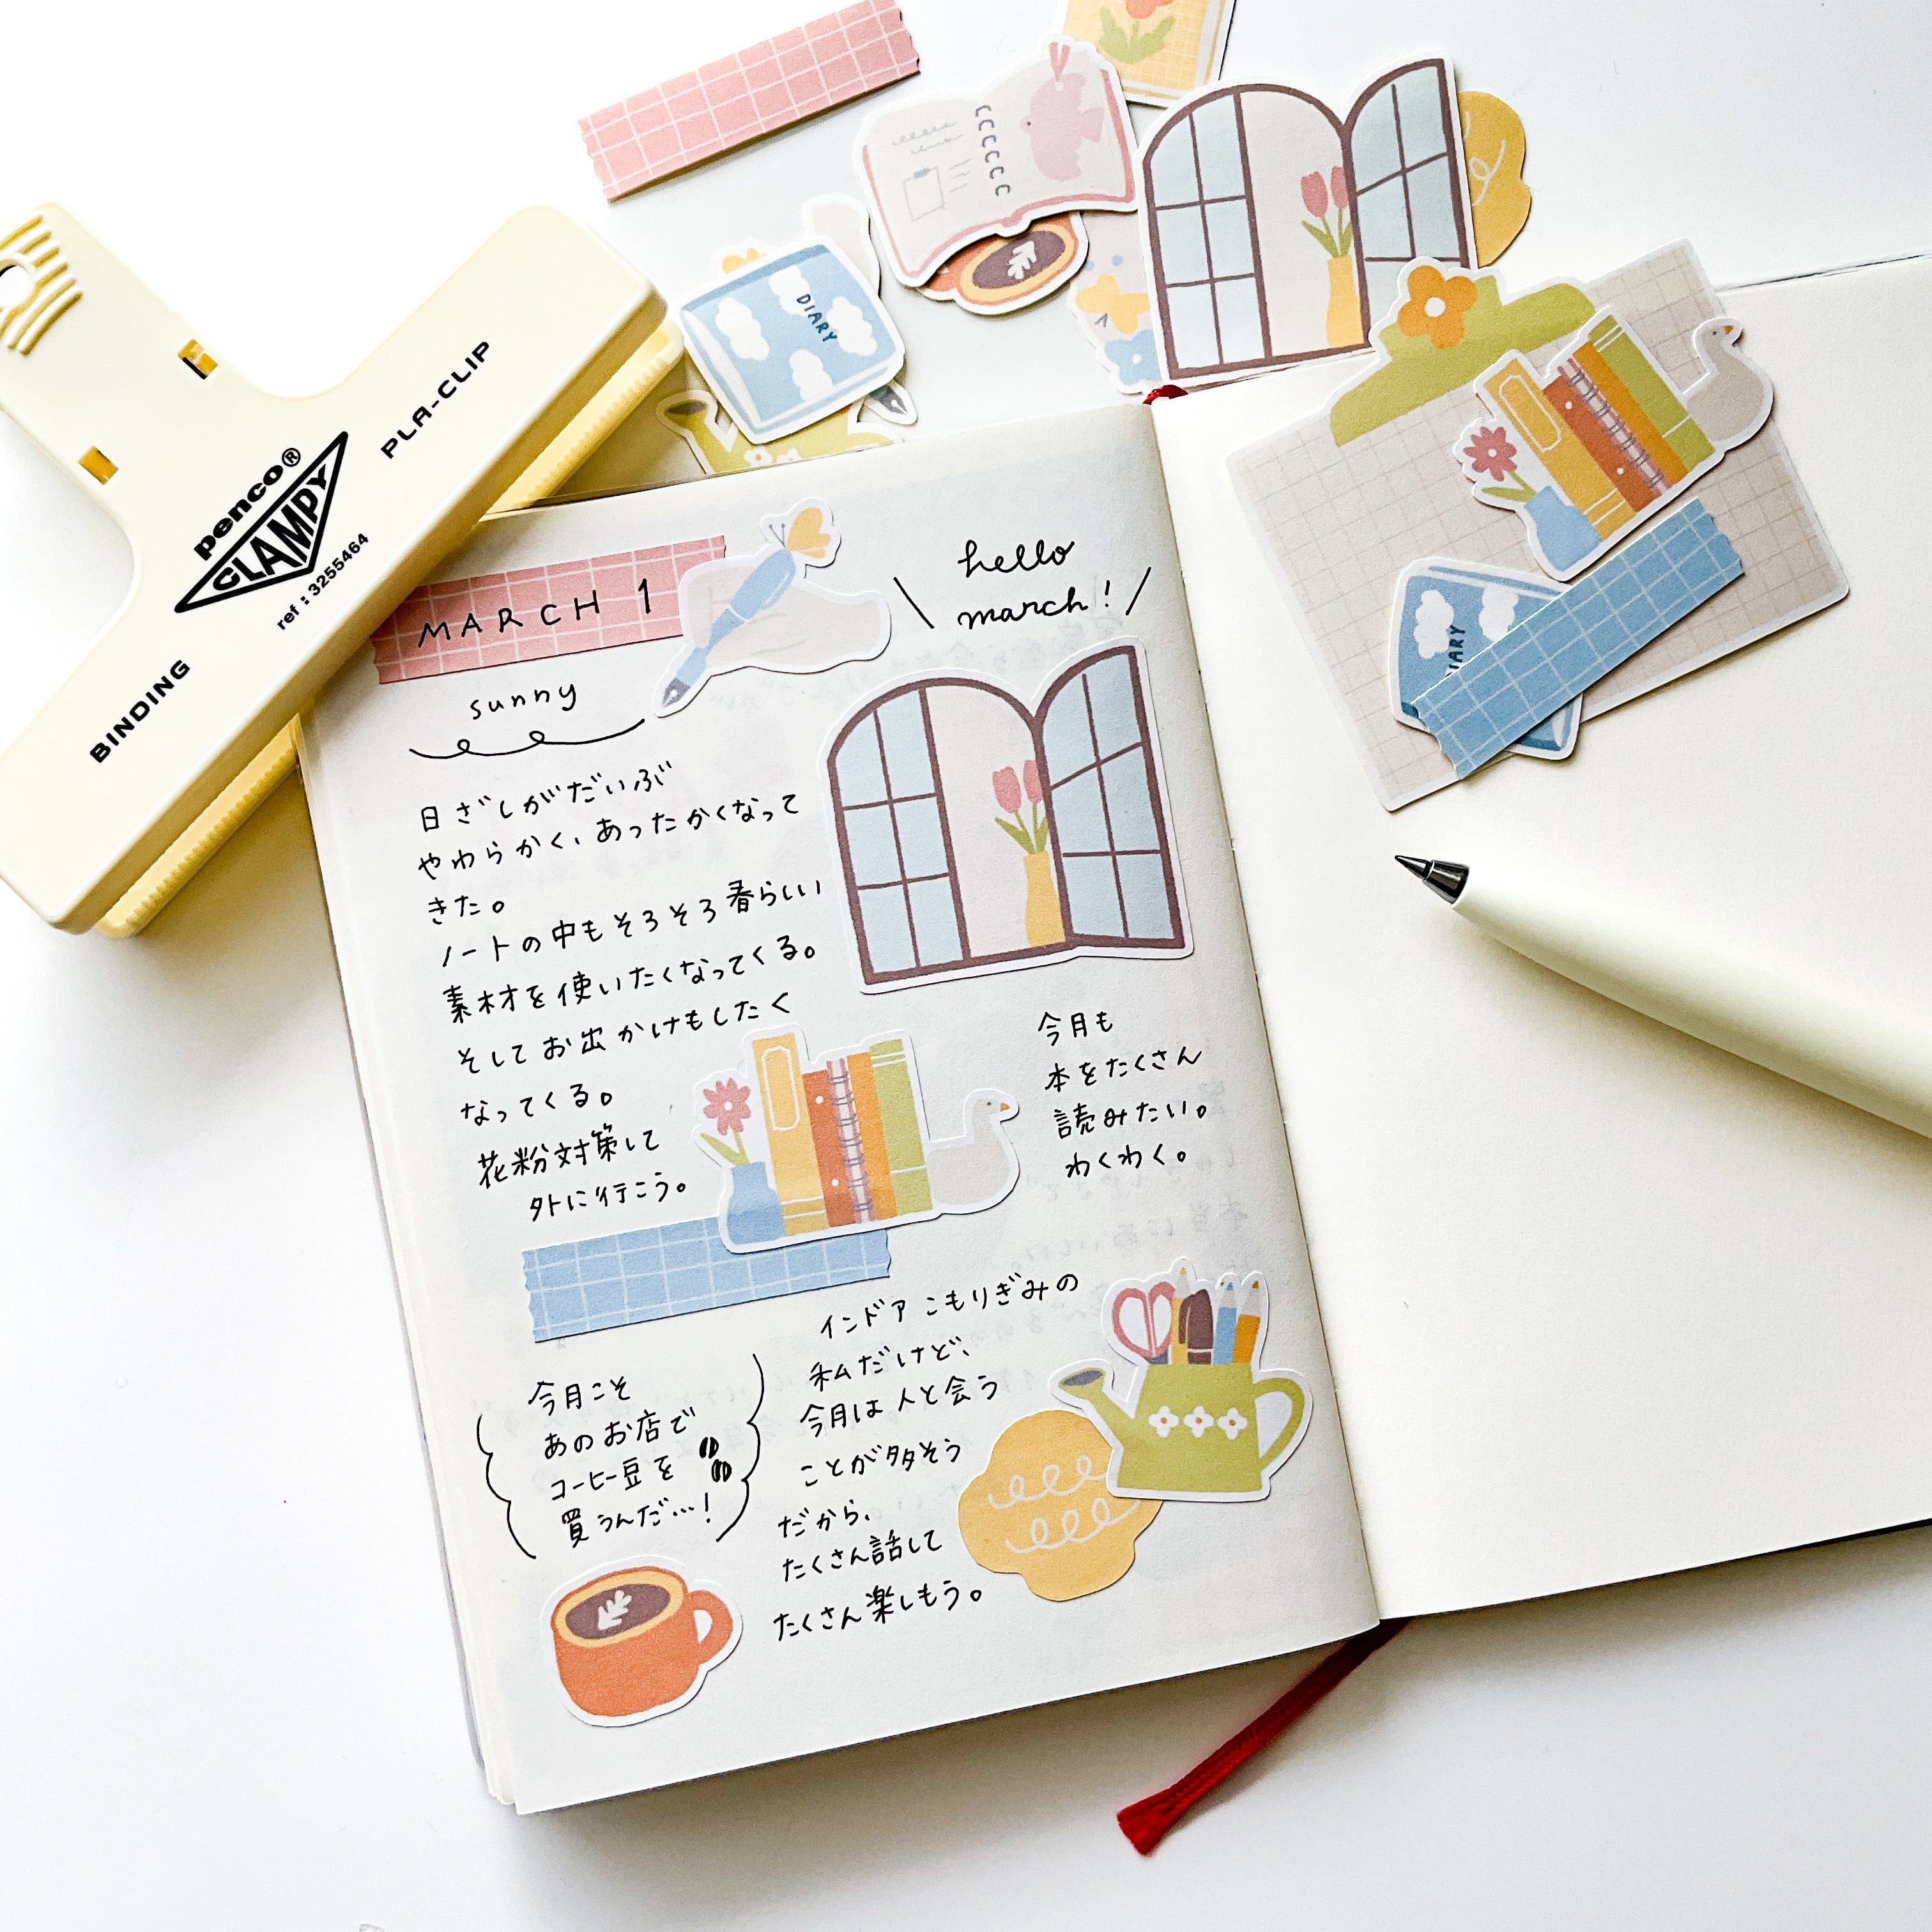 penco®
CLAMPY
PLA-CLIP
BINDING
ref : 3255464
DIARY
MARCH 1
hello
march!
sunny
日ざしがだいぶ
やわらかく、あったかくなって
きた。
ノートの中もそろそろ春らしい
素材を使いたくなってくる。
そしてお出かけもしたく
なってくる。
花粉対策して
外に行こう。
今月も
本をたくさん
読みたい。
わくわく。
今月こそ
あのお店で
コーヒー豆を
買うんだ…!
インドアこもりぎみの
私だけど、
今月は人と会う
ことが多そう
だから、
たくさん話して
たくさん楽しもう。
IARY